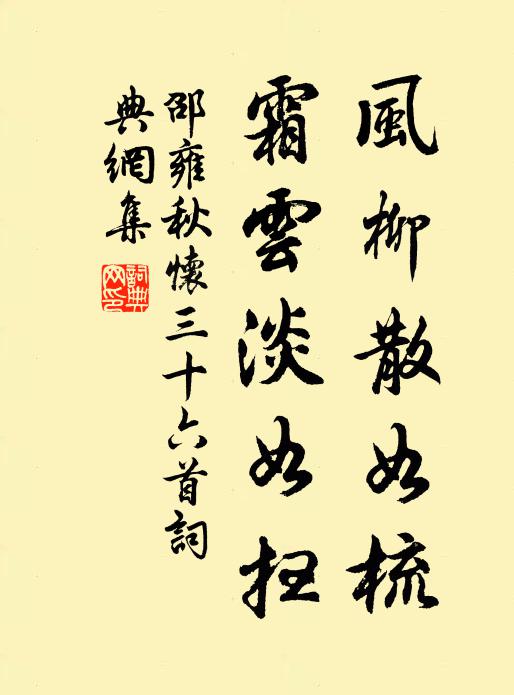 風柳散如梳
霜雲淡如扫
邵雍秋懷三十六首詞
典網集
詞典
网印